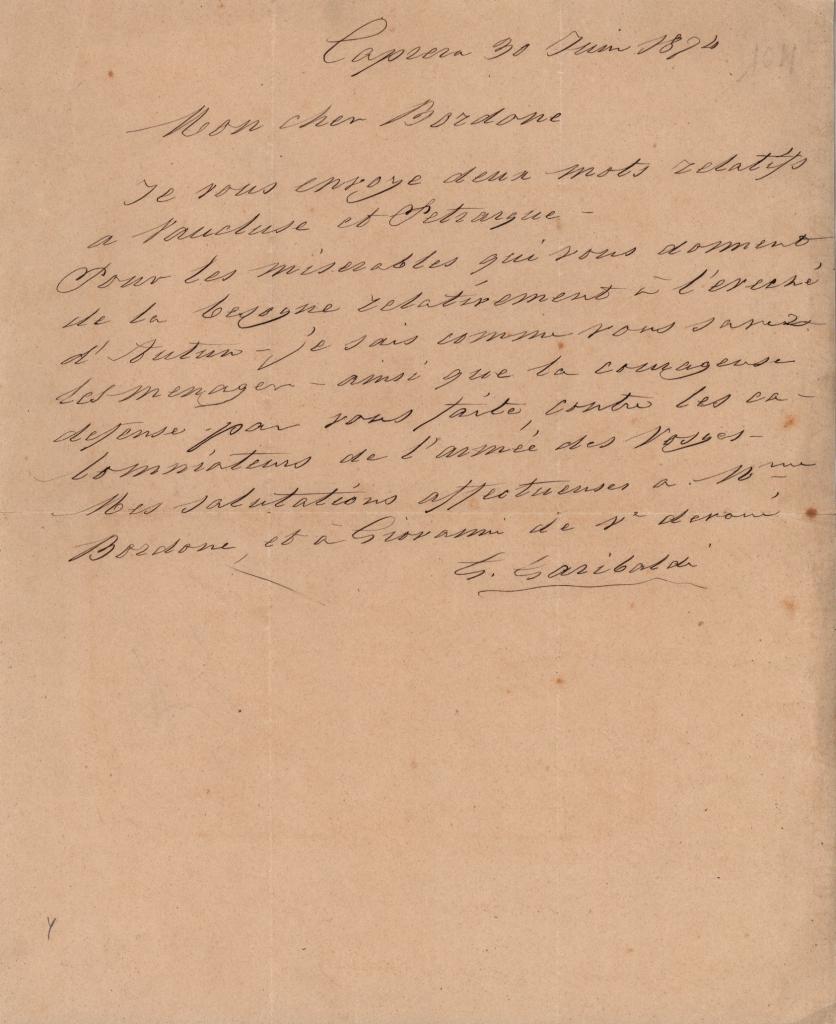 Caprera 30 Juin 1874
Mon cher Bordone
Je vous envoye deux mots relatifs
a Vaucluse et Petrarque -
Pour les miserables qui vous donnent
de la besogne relativement à l'eveché
d'Autun - je sais comme vous savez
les menager - ainsi que la courageuse
defense par vous faite, contre les ca-
lomniateurs de l'armée des Vosges -
Mes salutations affectueuses a Mme
Bordone, et à Giovanni de Ve devoué
G. Garibaldi
Y